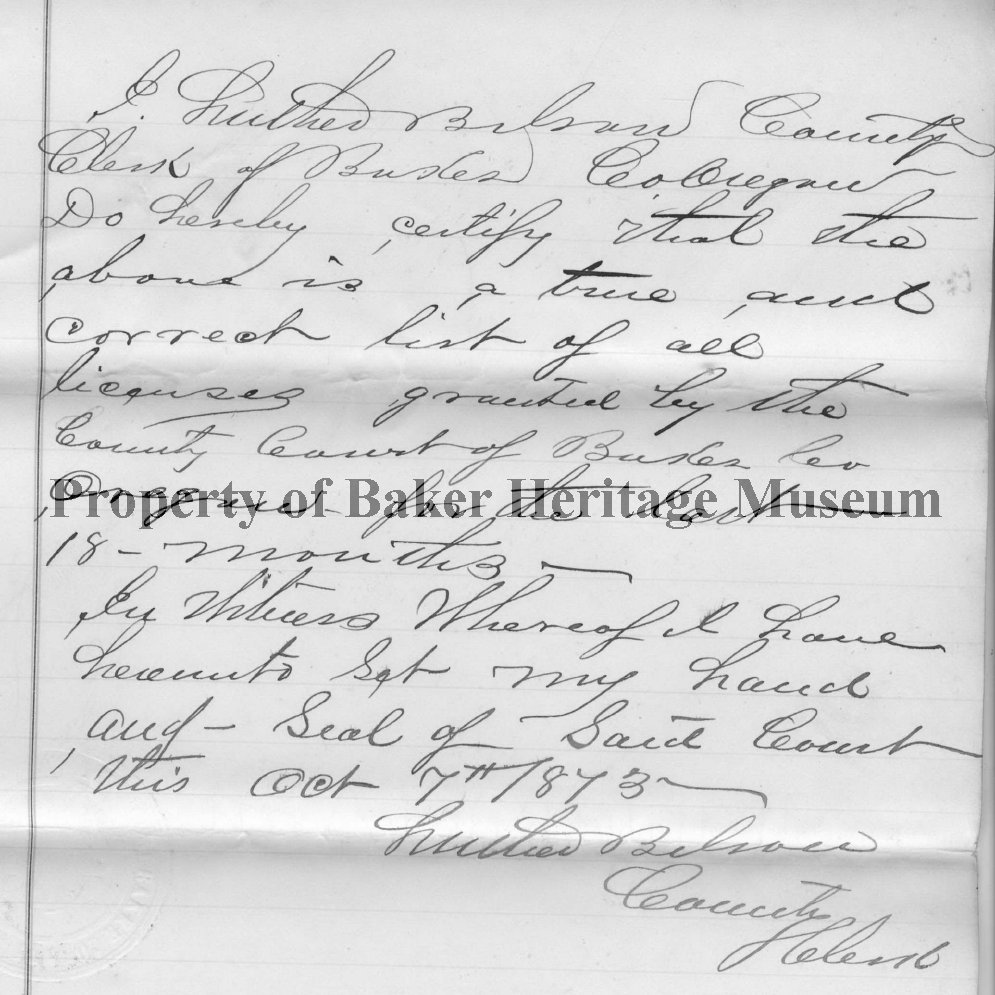 I. Luther B. Ison County
Clerk of Baker Co Oregon
Do hereby certify that the
above is a true and
correct list of all
licenses granted by the
County Court of Baker Co
Oregon for the last
Property of Baker Heritage Museum
18 - months -
In Witness Whereof I have
hereunto Set my hand
and - Seal of Said Court
this Oct 7th 1873
Luther B. Ison
County
Clerk